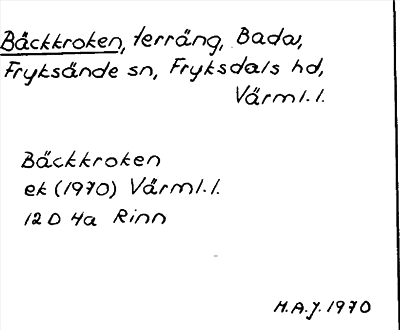 Bäckkroken, terräng, Bada,
Fryksände sn, Fryksdals hd,
Värml.l.
Bäckkroken
ek (1970) Värml.l.
12 D 4a Rinn
H.A.J. 1970